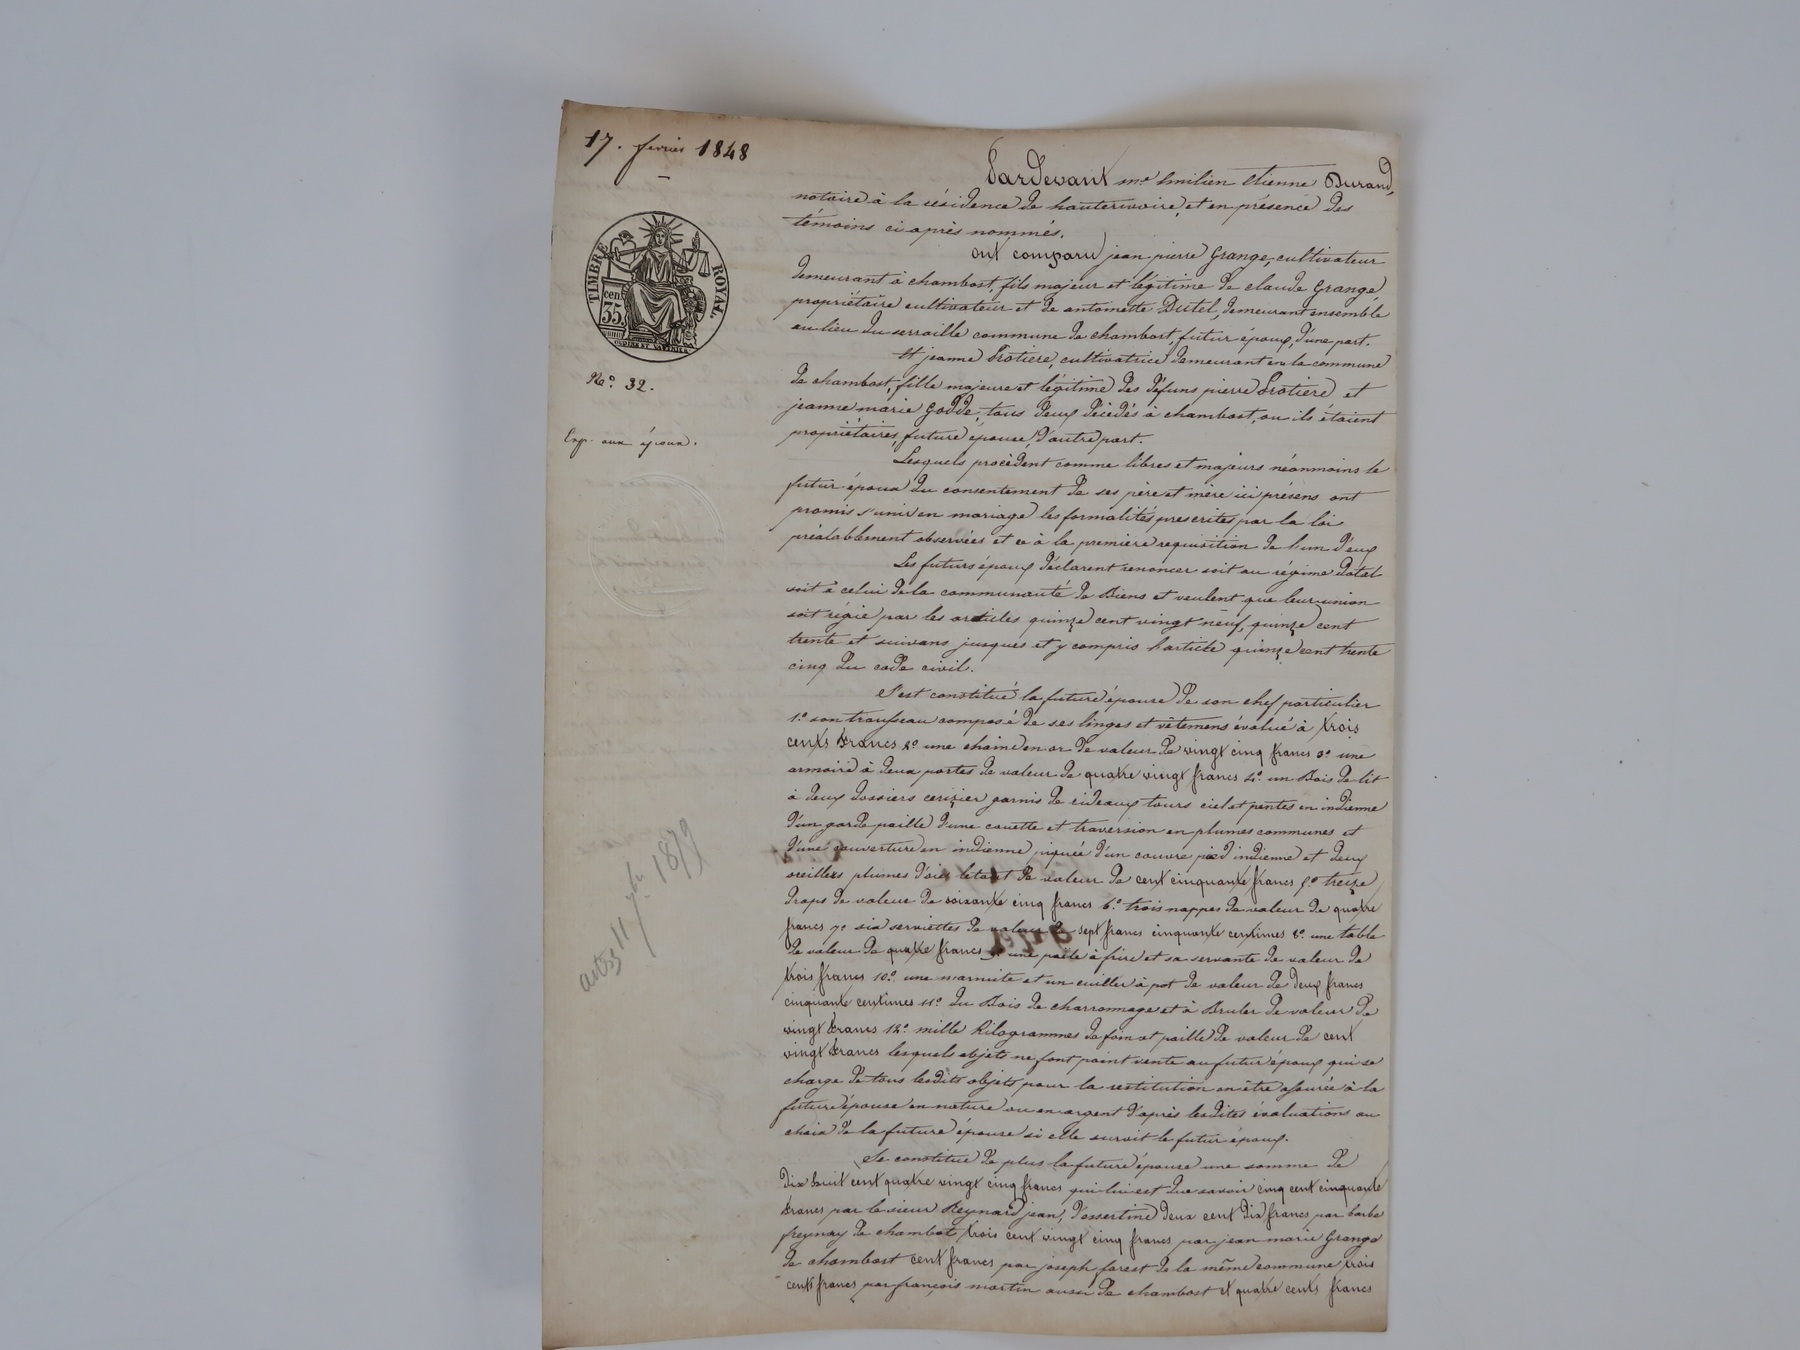 17. février 1848
TIMBRE ROYAL.
cen.
35.
No. 32.
Exp. aux époux.
Pardevant me Emilien Etienne Durand,
notaire à la résidence de hauterivoire, et en présence des
témoins ci après nommés.
ont comparu jean pierre Grange, cultivateur
demeurant à chambost, fils majeur et légitime de claude Grange
propriétaire cultivateur et de antoinette Dutel, demeurant ensemble
au lieu du serraille commune de chambost, futur époux, d'une part.
Et jeanne Protiere, cultivatrice demeurant en la commune
de chambost, fille majeure et légitime des défuns pierre Protiere et
jeanne marie Godde, tous deux décédés à chambost, ou ils étaient
propriétaires, future épouse, d'autre part.
Lesquels procèdent comme libres et majeurs néanmoins le
futur époux du consentement de ses père et mère ici présens ont
promis s'unir en mariage les formalités prescrites par la loi
préalablement observées et ce à la première requisition de l'un d'eux
Les futurs époux déclarent renoncer soit au régime dotal
soit à celui de la communauté de Biens et veulent que leur union
soit régie par les articles quinze cent vingt neuf, quinze cent
trente et suivans jusques et y compris l'article quinze cent trente
cinq du code civil.
S'est constitué la future épouse de son chef particulier
1o. son trousseau composé de ses linges et vêtemens évalué à trois
cents francs 2o. une chaine en or de valeur de vingt cinq francs 3o. une
armoire à deux portes de valeur de quatre vingt francs 4o. un Bois de lit
à deux dossiers cerizier garnis de rideaux tours ciel et pentes en indienne
d'un garde paille d'une couette et traversion en plumes communes et
d'une couverture en indienne piquée d'un couvre pied indienne et deux
oreilles plumes d'oies le tout de valeur de cent cinquante francs 5o. treize
draps de valeur de soixante cinq francs 6o. trois nappes de valeur de quatre
francs 7o. six serviettes de valeur de sept francs cinquante centimes 8o. une table
de valeur de quatre francs 9o. une poële à frire et sa servante de valeur de
trois francs 10o. une marmite et un cuiller à pot de valeur de deux francs
cinquante centimes 11o. du Bois de charronnage et à Bruler de valeur de
vingt francs 12o. mille Kilogrammes de foin et paille de valeur de cent
vingt francs lesquels objets ne font point vente au futur époux qui se
charge de tous lesdits objets pour la restitution en être assurée à la
future épouse en nature ou en argent d'après lesdites évaluations au
choix de la future épouse si elle survit le futur époux.
Se constitue de plus la future épouse une somme de
Dix huit cent quatre vingt cinq francs qui lui est due savoir cinq cent cinquante
francs par le sieur Reynard jean, d'essertine deux cent dix francs par barbe
freynay de chambost trois cent vingt cinq francs par jean marie Grange
de chambost cent francs par joseph forest de la même commune trois
cents francs par françois martin aussi de chambost et quatre cents francs
11 7bre 1879